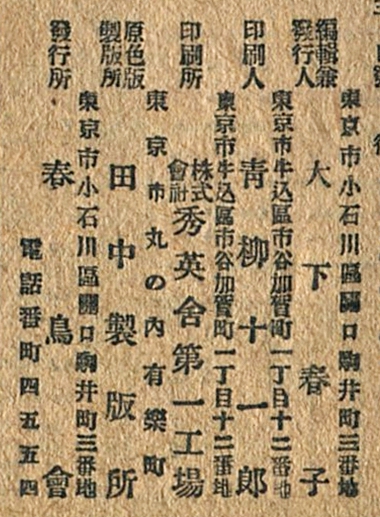 東京市小石川區關口駒井町三番地
編輯兼
發行人
大下春子
東京市牛込區市谷加賀町一丁目十二番地
印刷人
青柳十一郎
東京市牛込區市谷加賀町一丁目十二番地
印刷所
株式
會社
秀英舍第一工場
東京市丸の內有樂町
原色版
製版所
田中製版所
東京市小石川區關口駒井町三番地
發行所
春鳥會
電話番町四五五四